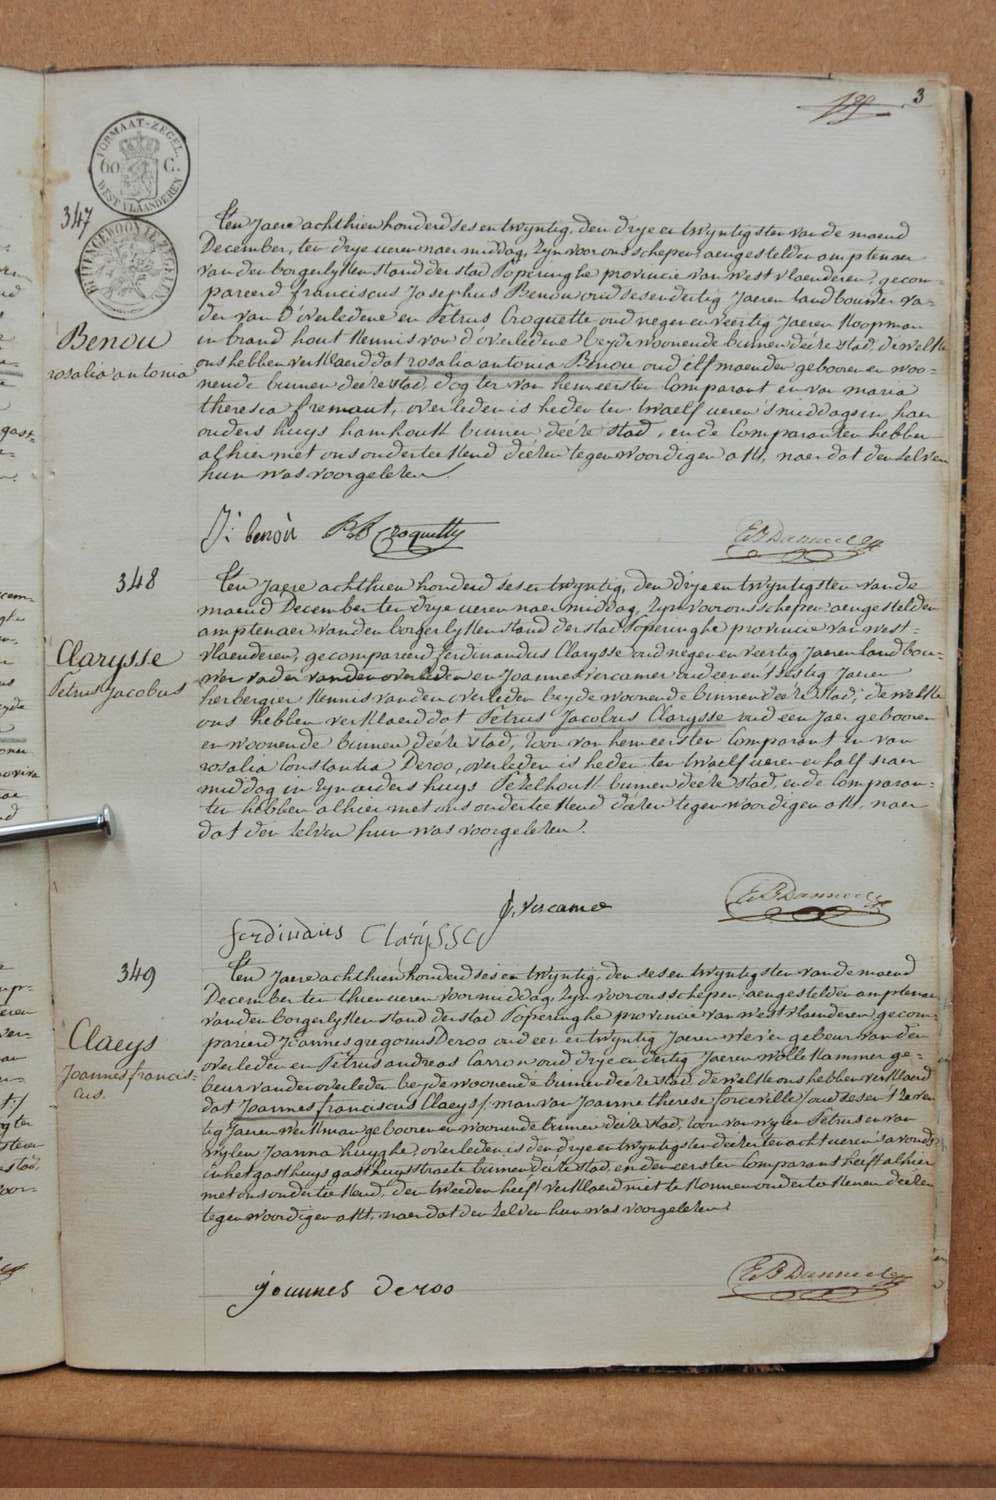 3
FORMAAT-ZEGEL
60 C.
WEST VLAANDEREN
347
BUITENGEWOONE ZEGELEN
Benou
rosalia antonia
Ten Jaere achthien honderd ses en twyntig, den drye en twyntigsten van de maend
December, ten drye ueren naer middag, Zyn voor ons schepen aengestelden amptenaer
van den borgerlyken stand der stad Poperinghe provincie van westvlaenderen, gecom-
pareerd franciscus Josephus Benou oud ses en dertig Jaeren landbouder va-
der van d'overledene en Petrus Croquette oud negen en veertig Jaeren Koopman
in brand hout Kennis van d'overledene beyde woonende binnen deéze stad, de welke
ons hebben verklaerd dat rosalia antonia Benou oud elf maenden gebooren en woo-
nende binnen deéze stad, dogter van hem eersten Comparant en van maria
theresia fremaut, overleden is heden ten twaelf ueren 's middags in haer
ouders huys hamhoutk binnen deéze stad, en de Comparanten hebben
alhier met ons onderteekend deézen tegenwoordigen akt, naer dat den zelven
hun was voorgelezen.
J: benoú P B Croquette
E B Danneel
348
Clarysse
Petrus Jacobus
Ten Jaere achthien honderd ses en twyntig, den drye en twyntigsten van de
maend December ten drye ueren naer middag, Zyn voor ons schepen aengestelden
amptenaer van den borgerlyken stand der stad Poperinghe provincie van west-
vlaenderen, gecompareerd ferdinandus Clarysse oud negen en veertig Jaeren landbou-
wer vader van den overleden en Joannes vercamer oud een en t'sestig Jaeren
herbergier Kennis van den overleden beyde woonende binnen deéze stad, de welke
ons hebben verklaerd dat Petrus Jacobus Clarysse oud een Jaer gebooren
en woonende binnen deéze stad, zoon van hem eersten Comparant en van
rosalia Constantia Deroo, overleden is heden ten twaelf ueren en half naer
middag in zyn ouders huys Pezelhoutk binnen deéze stad, en de Comparan-
ten hebben alhier met ons onderteekend deézen tegenwoordigen akt, naer
dat den zelven hun was voorgelezen.
J, vercamer
E B Danneel
ferdinandus Clarysse
349
Claeys
Joannes francis-
cus.
Ten Jaere achthien honderd ses en twyntig, den ses en twyntigsten van de maend
December ten thien ueren voormiddag, Zyn voor ons schepen aengestelden amptenaer
van den borgerlyken stand der stad Poperinghe provincie van westvlaenderen, gecom-
pareerd Joannes gregorius Deroo oud een en twyntig Jaeren wever gebeur van den
overleden en Petrus andreas Carron oud drye en dertig Jaeren wolle Kammer ge-
beur van den overleden beyde woonende binnen deéze stad, de welke ons hebben verklaerd
dat Joannes franciscus Claeys /: man van Joanne therese forceville / oud ses en t'zeven-
tig Jaeren werkman gebooren en woonende binnen deéze stad, zoon van wylen Petrus en van
wylen Joanna huyghe, overleden is den drye en twyntigsten deézer ten acht ueren 's avonds
in het gasthuys gasthuysstraete binnen deéze stad, en den eersten Comparant heeft alhier
met ons onderteekend, den tweeden heeft verklaerd niet te Konnen onderteekenen deézen
tegenwoordigen akt, naer dat den zelven hun was voorgelezen.
joannes Deroo
E B Danneel